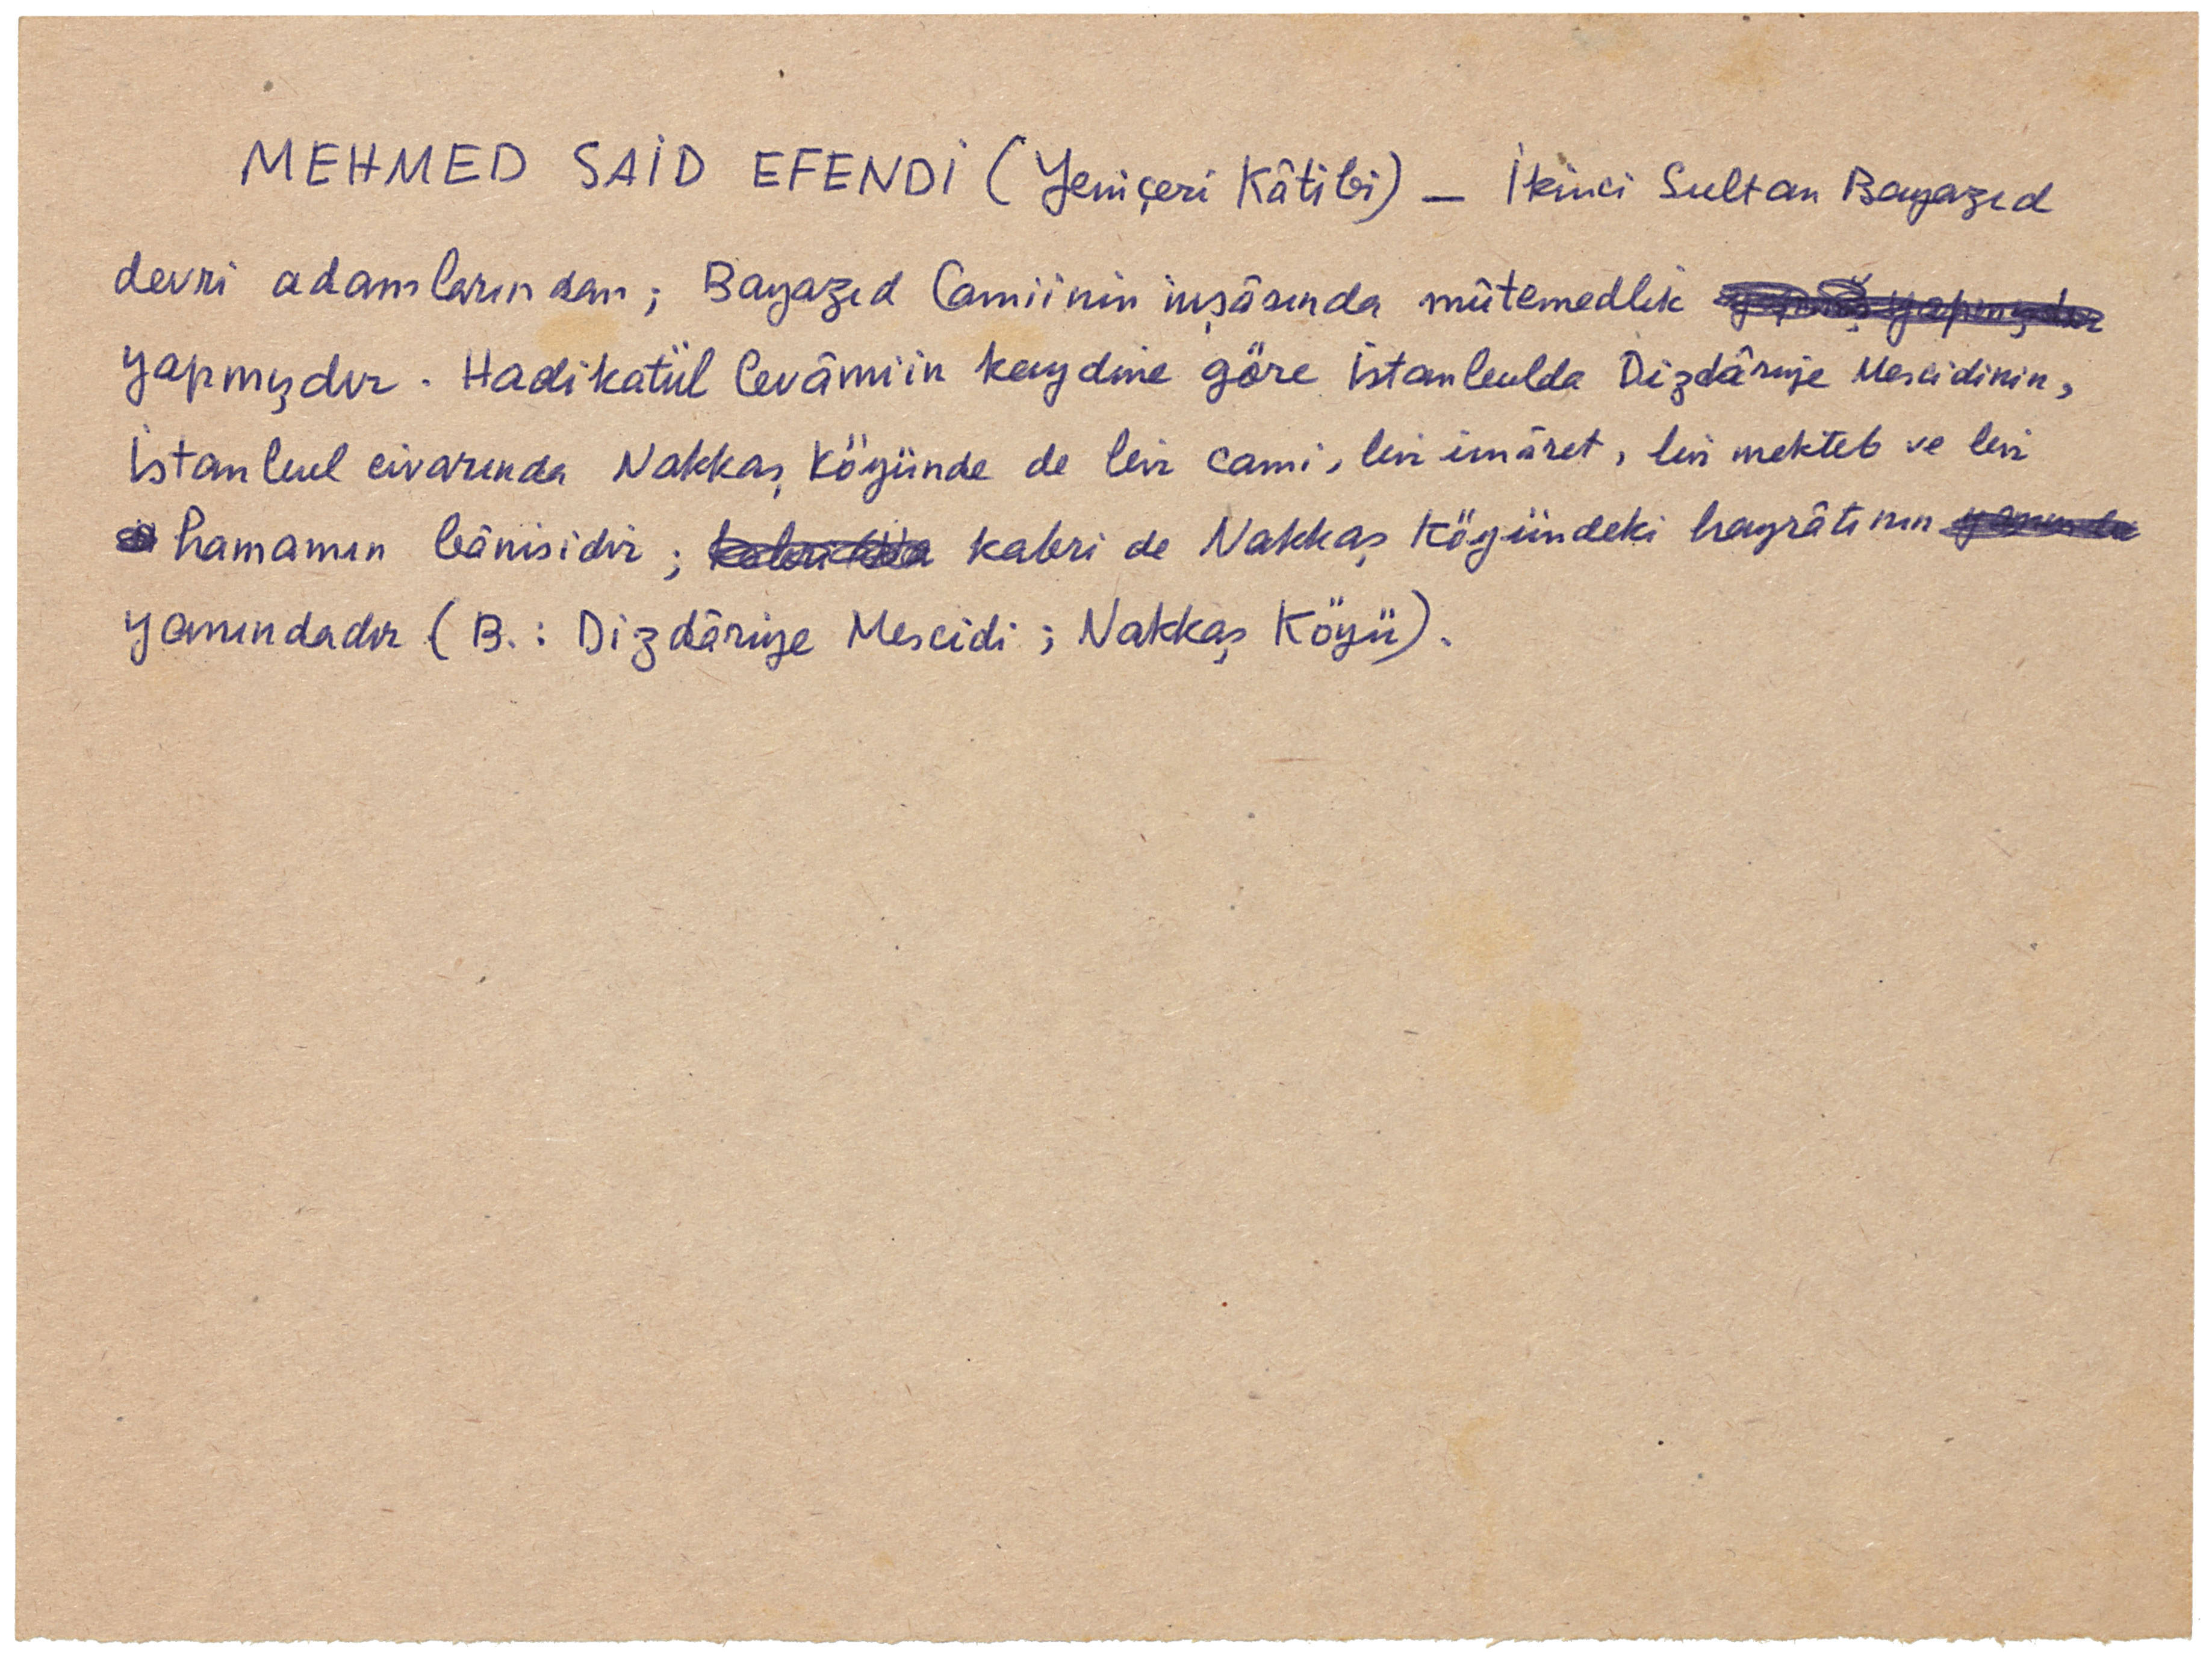 MEHMED SAİD EFENDİ (Yeniçeri Kâtibi) — İkinci Sultan Bayazıd
devri adamlarından; Bayazıd Camiinin inşâsında mûtemedlik
yapmışdır. Hadikatül Cevâmiin kaydine göre İstanbulda Dizdâriye Mescidinin,
İstanbul civarında Nakkaş Köyünde de bir cami, bir imâret, bir mekteb ve bir
hamamın bânisidir; kabri de Nakkaş Köyündeki hayrâtının
yanındadır (B.: Dizdâriye Mescidi; Nakkaş Köyü).